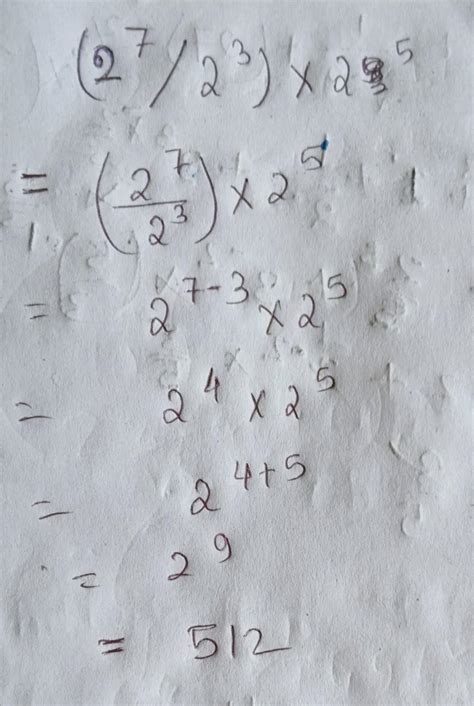 (2⁷/2³) × 2⁵
= (2⁷/2³) × 2⁵
= 2⁷⁻³ × 2⁵
= 2⁴ × 2⁵
= 2⁴⁺⁵
= 2⁹
= 512